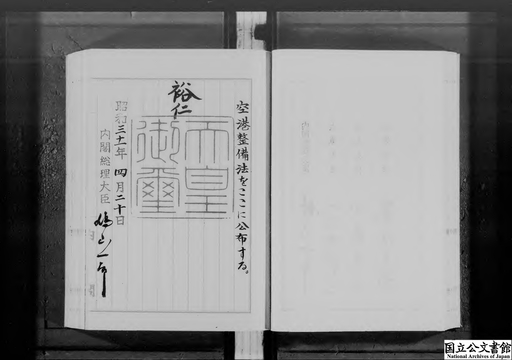 空港整備法をここに公布する。
裕仁
天皇御璽
昭和三十一年四月二十日
内閣総理大臣 鳩山一郎
国立公文書館
National Archives of Japan